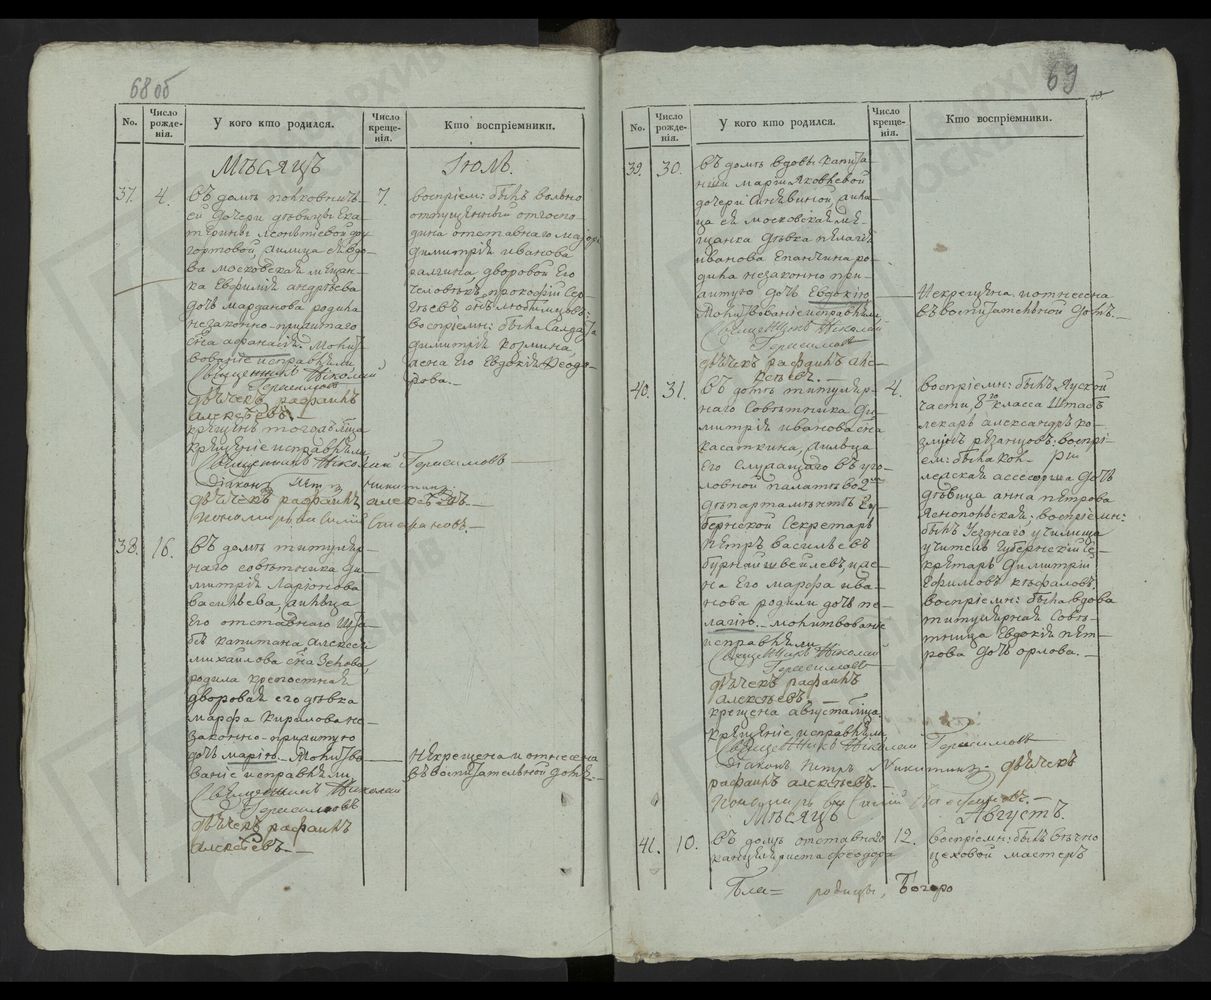 68 об
No.
Число рожденія.
У кого кто родился.
Число крещенія.
Кто воспріемники.
Мѣсяцъ Іюль.
37. 4.
въ домѣ полковничь-
ей дочери дѣвицы Ека-
терины Леонтьевой
гортовой, жилица ея вдо-
ва московская мещан-
ка Евфимія андрѣева
дочь марданова родила
незаконно прижитаго
сына афанасія. Молит
вованіе исправляли
Священникъ Николай
Герасимовъ
дьячекъ рафаилъ
алексѣевъ.
крещенъ того мѣсяца
крещеніе исправляли
Священникъ Николай Герасимовъ
Діаконъ Петръ никитинъ.
дьячекъ рафаилъ алексѣевъ.
Пономарь василій Стефановъ.
7.
воспріем: былъ вольно
отпущенный отгоспо-
дина отставнаго маіора
димитрія иванова
дворовой Его
человѣкъ прокофій Сер-
гѣевъ сынъ любимцовъ:
воспріемн: была Салдата
димитрія кормина,
жена Его Евдокія Феодо-
рова.
38. 16.
въ домѣ титуляр-
наго совѣтника Ди-
митрія Ларіонова
васильева, жильца
Его отставнаго Шта
бъ капитана алексея
михайлова сына
родила крепостная
дворовая его дѣвка
марфа Кирилова не-
законно-прижитую
дочь марію. Молитво
ваніе исправляли
Священникъ Николай
Герасимовъ
дьячекъ рафаилъ
алексѣевъ.
Некрещена и отнесена
въ воспитательной домъ.
69
No.
Число рожденія.
У кого кто родился.
Число крещенія.
Кто воспріемники.
39. 30.
въ домѣ вдовы капита
нши маріи Яковлевой
дочери Анневиной, жили
ца ея московская ме-
щанка дѣвка пелагія
иванова Епанчина ро-
дила незаконно при-
житую дочь Евдокію
Молитвованіе исправляли
Священникъ Николай
Герасимовъ
дьячекъ рафаилъ але-
ксѣевъ.
Некрещена, и отнесена
въ воспитательной домъ.
40. 31.
въ домѣ титуляр-
наго Совѣтника Ди-
митрія иванова сына
касаткина, жильца
Его служащаго въ уго-
ловной палаты во 2мъ
департаментѣ Гу-
бернской Секретарь
Петръ васильевъ
жена Его марфа ива-
нова родили дочь пе-
лагію. молитвованіе
исправляли
Священникъ Николай
Герасимовъ
дьячекъ рафаилъ
алексѣевъ.
крещена августа мѣсяца
крещеніе исправляли
Священникъ Николай Герасимовъ
Діаконъ Петръ Никитинъ. дьячекъ
рафаилъ алексѣевъ.
Пономарь василій Стефановъ.
4.
воспріемн: былъ Яуской
части, 8го класса Штабъ
лекарь александръ ко-
змичъ рязанцовъ: воспрі-
ем: была кол-
лежская ассесорша дочь
дѣвица анна петрова
Яснопольская; воспріемн:
былъ Уезднаго училища
учитель Губернскій Се-
кретарь Димитрій
Ефимовъ кефаловъ.
воспріемн: была вдова
титулярная Совѣ-
тница Евдокія пет-
рова дочь орлова.
Мѣсяцъ Августъ.
41. 10.
въ домѣ отставнаго
канцеляриста феодора
12.
воспріемн: былъ вѣчно
цеховой мастеръ
Бла= родицы, Богоро